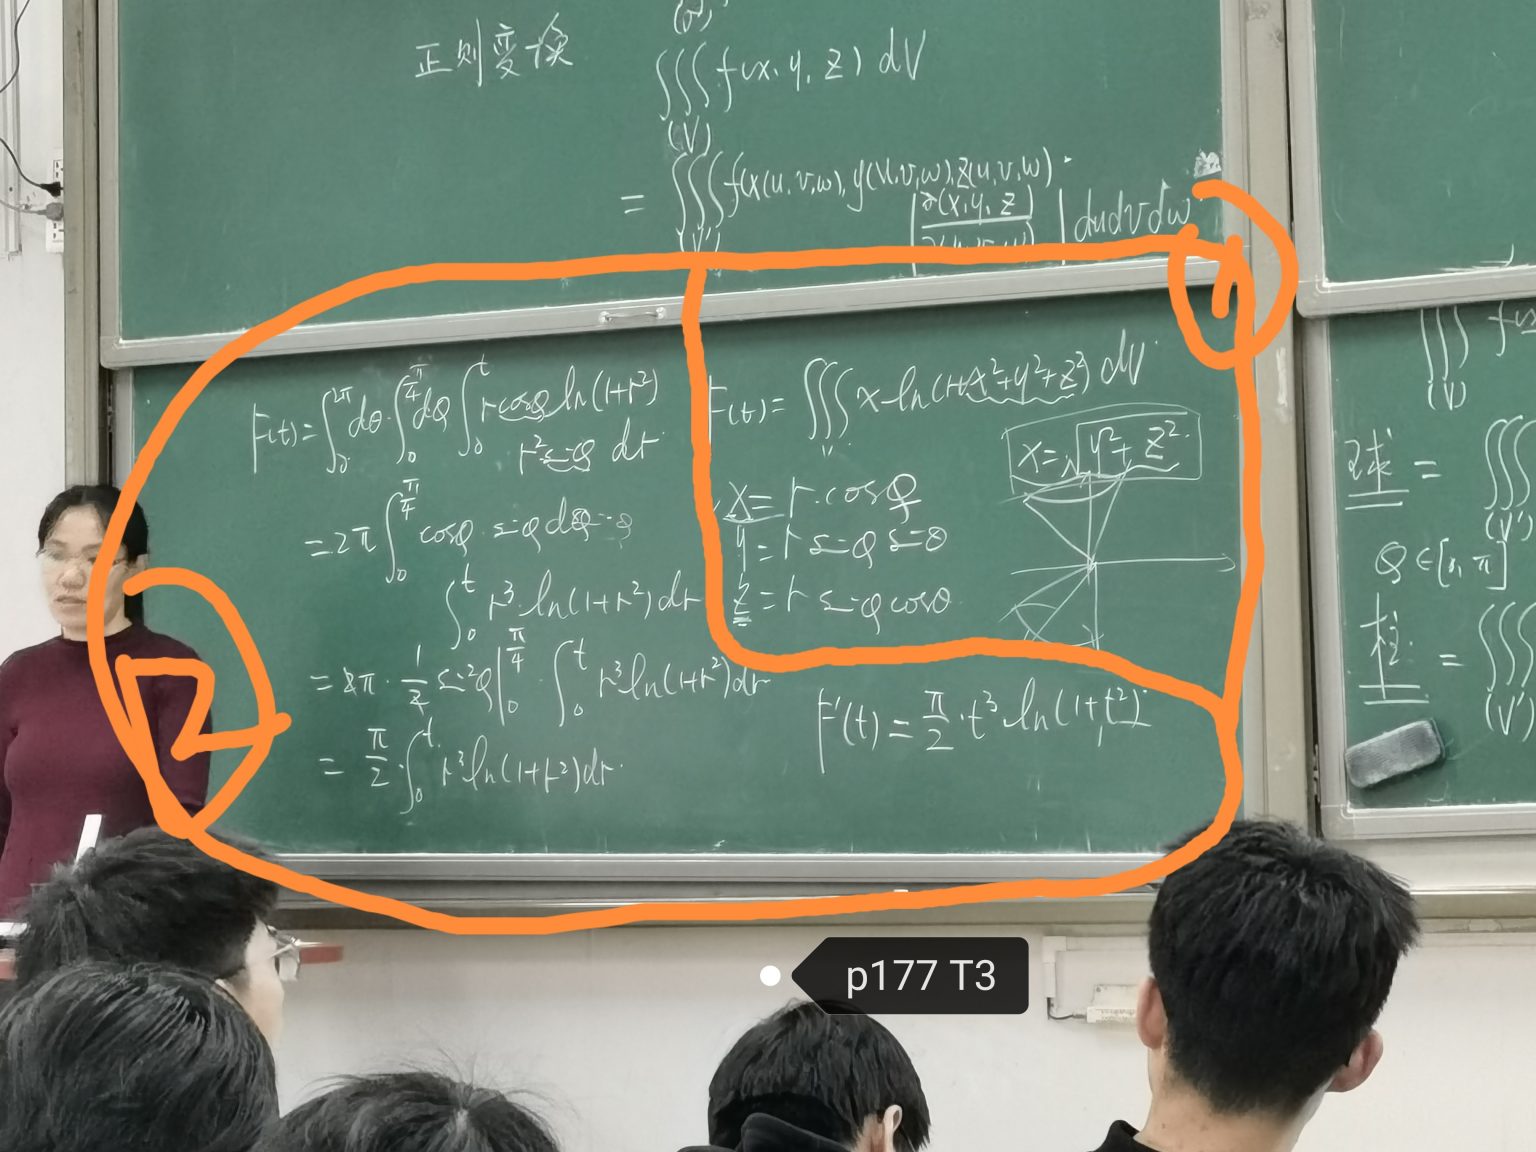 正则变换
∭ f(x, y, z) dV
(V)
= ∭ f(x(u,v,w), y(u,v,w), z(u,v,w)) ·
(V') |∂(x,y,z)/∂(u,v,w)| dudvdw
1
F(t) = ∭ x ln(1+x²+y²+z²) dV
V
x = √(y²+z²)
x = r·cosφ
y = r sinφ sinθ
z = r sinφ cosθ
2
F(t) = ∫₀^{2π} dθ · ∫₀^{π/4} dφ ∫₀^t r cosφ ln(1+r²)
r² sinφ dr
= 2π ∫₀^{π/4} cosφ · sinφ dφ
∫₀^t r³ · ln(1+r²) dr
= 2π · 1/2 sin²φ |₀^{π/4} · ∫₀^t r³ ln(1+r²) dr
= π/2 · ∫₀^t r³ ln(1+r²) dr
F'(t) = π/2 · t³ · ln(1+t²)
∭
(V)
球 = ∭
(V')
φ ∈ [0, π]
柱 = ∭
(V')
p177 T3